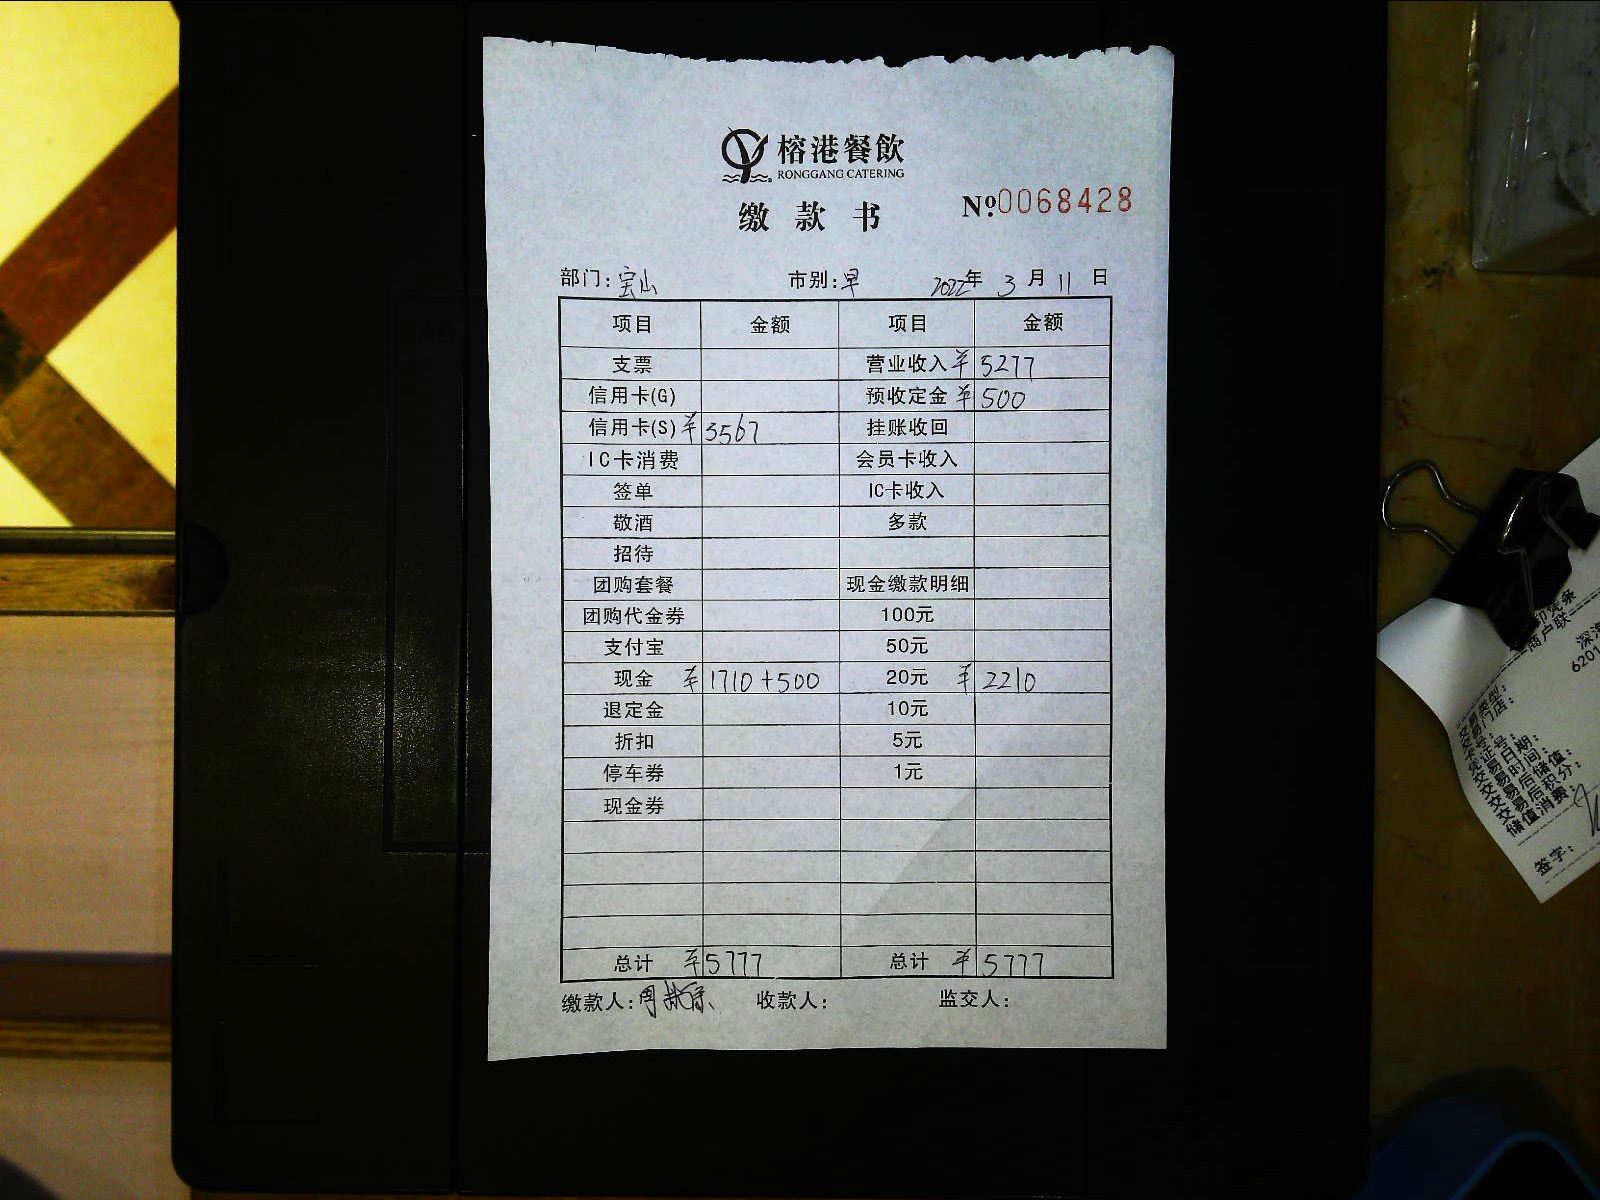 榕港餐飲
RONGGANG CATERING
缴款书 №0068428
部门:宝山 市别:早 2022年3月11日
项目 金额 项目 金额
支票 营业收入 ¥5277
信用卡(G) 预收定金 ¥500
信用卡(S) ¥3567 挂账收回
IC卡消费 会员卡收入
签单 IC卡收入
敬酒 多款
招待
团购套餐 现金缴款明细
团购代金券 100元
支付宝 50元
现金 ¥1710+500 20元 ¥2210
退定金 10元
折扣 5元
停车券 1元
现金券
总计 ¥5777 总计 ¥5777
缴款人:周 收款人: 监交人:
商户联
6201
交易类型:
门店:
交易日期:
交易时间:
交易后储值:
交易后积分:
储值消费:
签字: